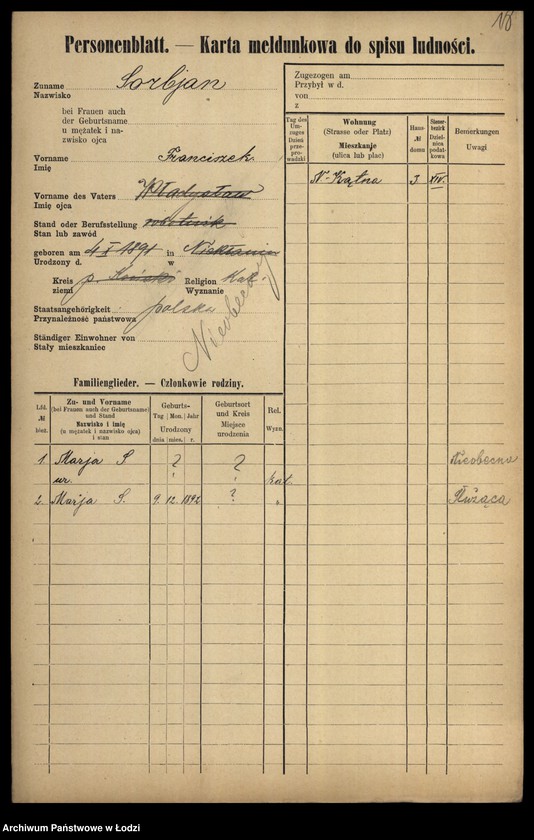 18
Personenblatt. — Karta meldunkowa do spisu ludności.
Zuname Sorbjan
Nazwisko
bei Frauen auch
der Geburtsname
u mężatek i na-
zwisko ojca
Vorname Franciszek
Imię
Vorname des Vaters Władysław
Imię ojca
Stand oder Berufsstellung robotnik
Stan lub zawód
geboren am 4 I 1891 in
Urodzony d. w
Kreis p. Koński Religion Kat.
ziemi Wyznanie
Staatsangehörigkeit polska
Przynależność państwowa
Ständiger Einwohner von
Stały mieszkaniec
Nieobecny
Zugezogen am
Przybył w d.
von
z
Tag des Um-zuges Dzień prze-pro-wadzki
Wohnung (Strasse oder Platz) Mieszkanje (ulica lub plac)
Haus-№ domu
Steuer-bezirk Dziel-nica podat-kowa
Bemerkungen Uwagi
N-Kątna 3 XIV.
Familienglieder. — Członkowie rodziny.
Lfd. № bież.
Zu- und Vorname (bei Frauen auch der Geburtsname) und Stand Nazwisko i imię (u mężatek i nazwisko ojca) i stan
Geburts- Tag Mon. Jahr Urodzony dnia mies. r.
Geburtsort und Kreis Miejsce urodzenia
Rel. Wyzn.
1. Marja S ? ? Nieobecna
ur. kat.
2. Marja S. 9. 12. 1892 ? " Służąca
Archiwum Państwowe w Łodzi